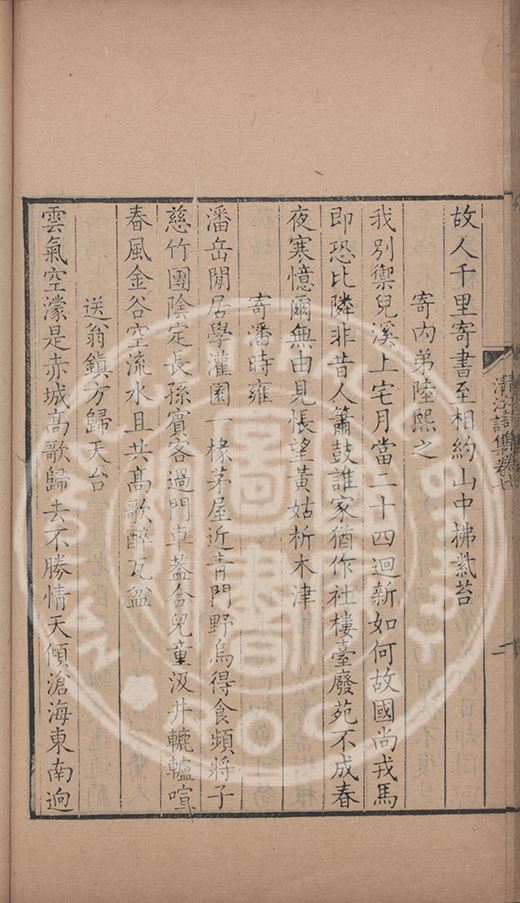 清江詩集卷七
故人千里寄書至相約山中拂紫苔
寄內弟陸熙之
我別禦兒溪上宅月當二十四迴新如何故國尚戎馬
即恐比隣非昔人簫鼓誰家猶作社樓臺廢苑不成春
夜寒憶爾無由見悵望黃姑析木津
寄潘時雍
潘岳閒居學灌園一椽茅屋近青門野烏得食頻將子
慈竹團陰定長孫賓客過門車蓋合兒童汲井轆轤喧
春風金谷空流水且共高歌醉瓦盆
送翁鎮方歸天台
雲氣空濛是赤城高歌歸去不勝情天傾滄海東南迥